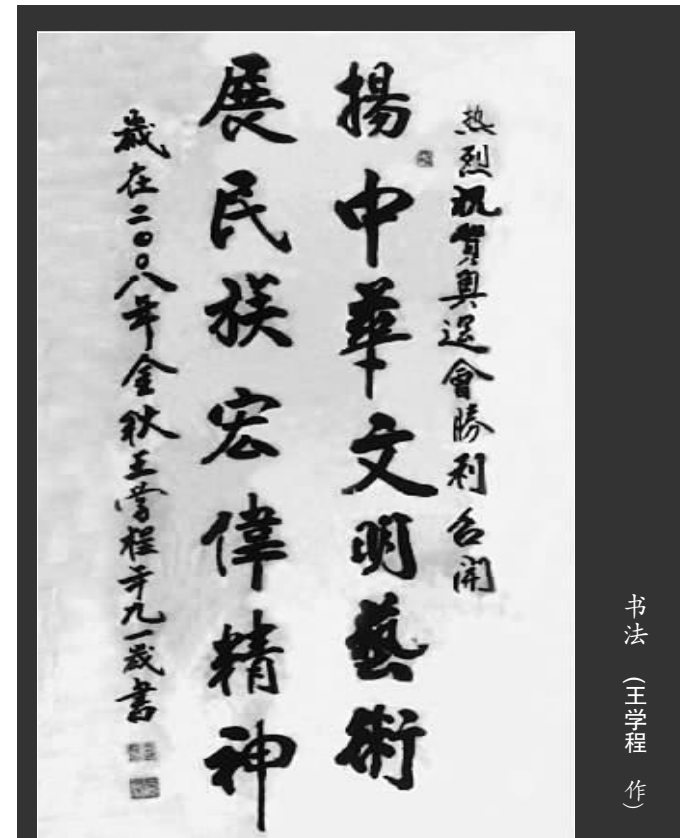 热烈祝賀奥运會勝利召開
揚中華文明藝術
展民族宏偉精神
歲在二〇〇八年金秋王學程年九一歲書
书法 (王学程 作)